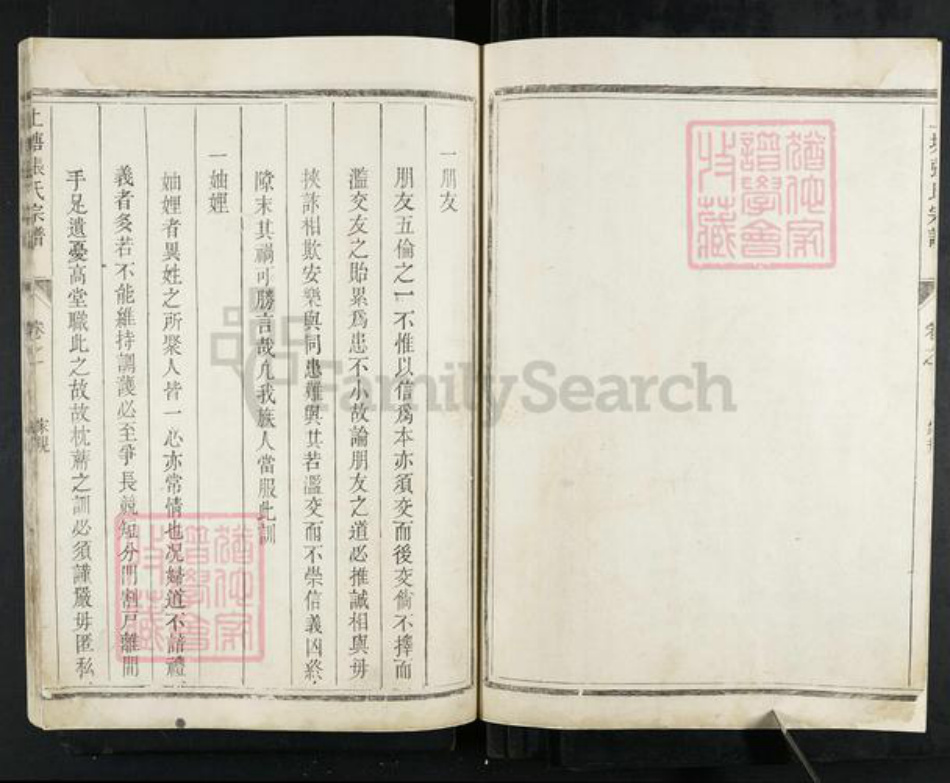 一朋友
朋友五倫之一不惟以信爲本亦須交而後交倘不擇而
濫交友之貽累爲患不小故論朋友之道必推誠相與毋
挾詐相欺安樂與同患難與共若濫交而不崇信義凶終
隙末其禍可勝言哉凡我族人當服此訓
一妯娌
妯娌者異姓之所聚人皆一心亦常情也况婦道不諳禮
義者多若不能維持調護必至爭長競短分門割戸離間
手足遺憂高堂職此之故故枕蓆之訓必須謹嚴毋匿私
上塘張氏宗譜
卷之一
家規
FamilySearch
猶他家
譜學會
收藏
猶他家
譜學會
收藏